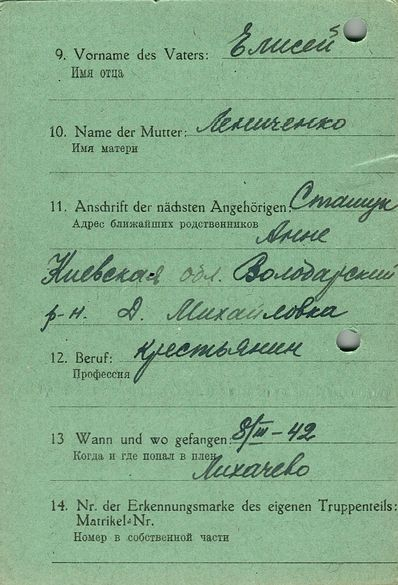 9. Vorname des Vaters: Елисей
Имя отца
10. Name der Mutter: Лениченко
Имя матери
11. Anschrift der nächsten Angehörigen: Сташук
Адрес ближайших родственников
Анне
Киевская обл. Володарский
р-н. Д. Михайловка
12. Beruf: крестьянин
Профессия
13 Wann und wo gefangen: 8/III-42
Когда и где попал в плен
Лихачево
14. Nr. der Erkennungsmarke des eigenen Truppenteils:
Matrikel-Nr.
Номер в собственной части